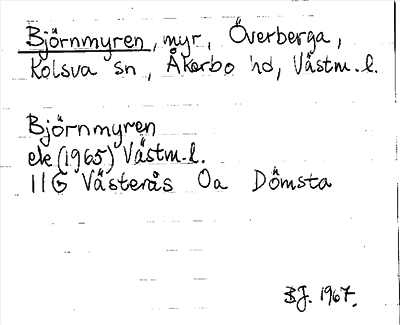 Björnmyren, myr, Överberga,
Kolsva sn, Åkerbo hd, Västm.l.
Björnmyren
ek (1965) Västm.l.
11G Västerås Oa Dömsta
BJ. 1967.